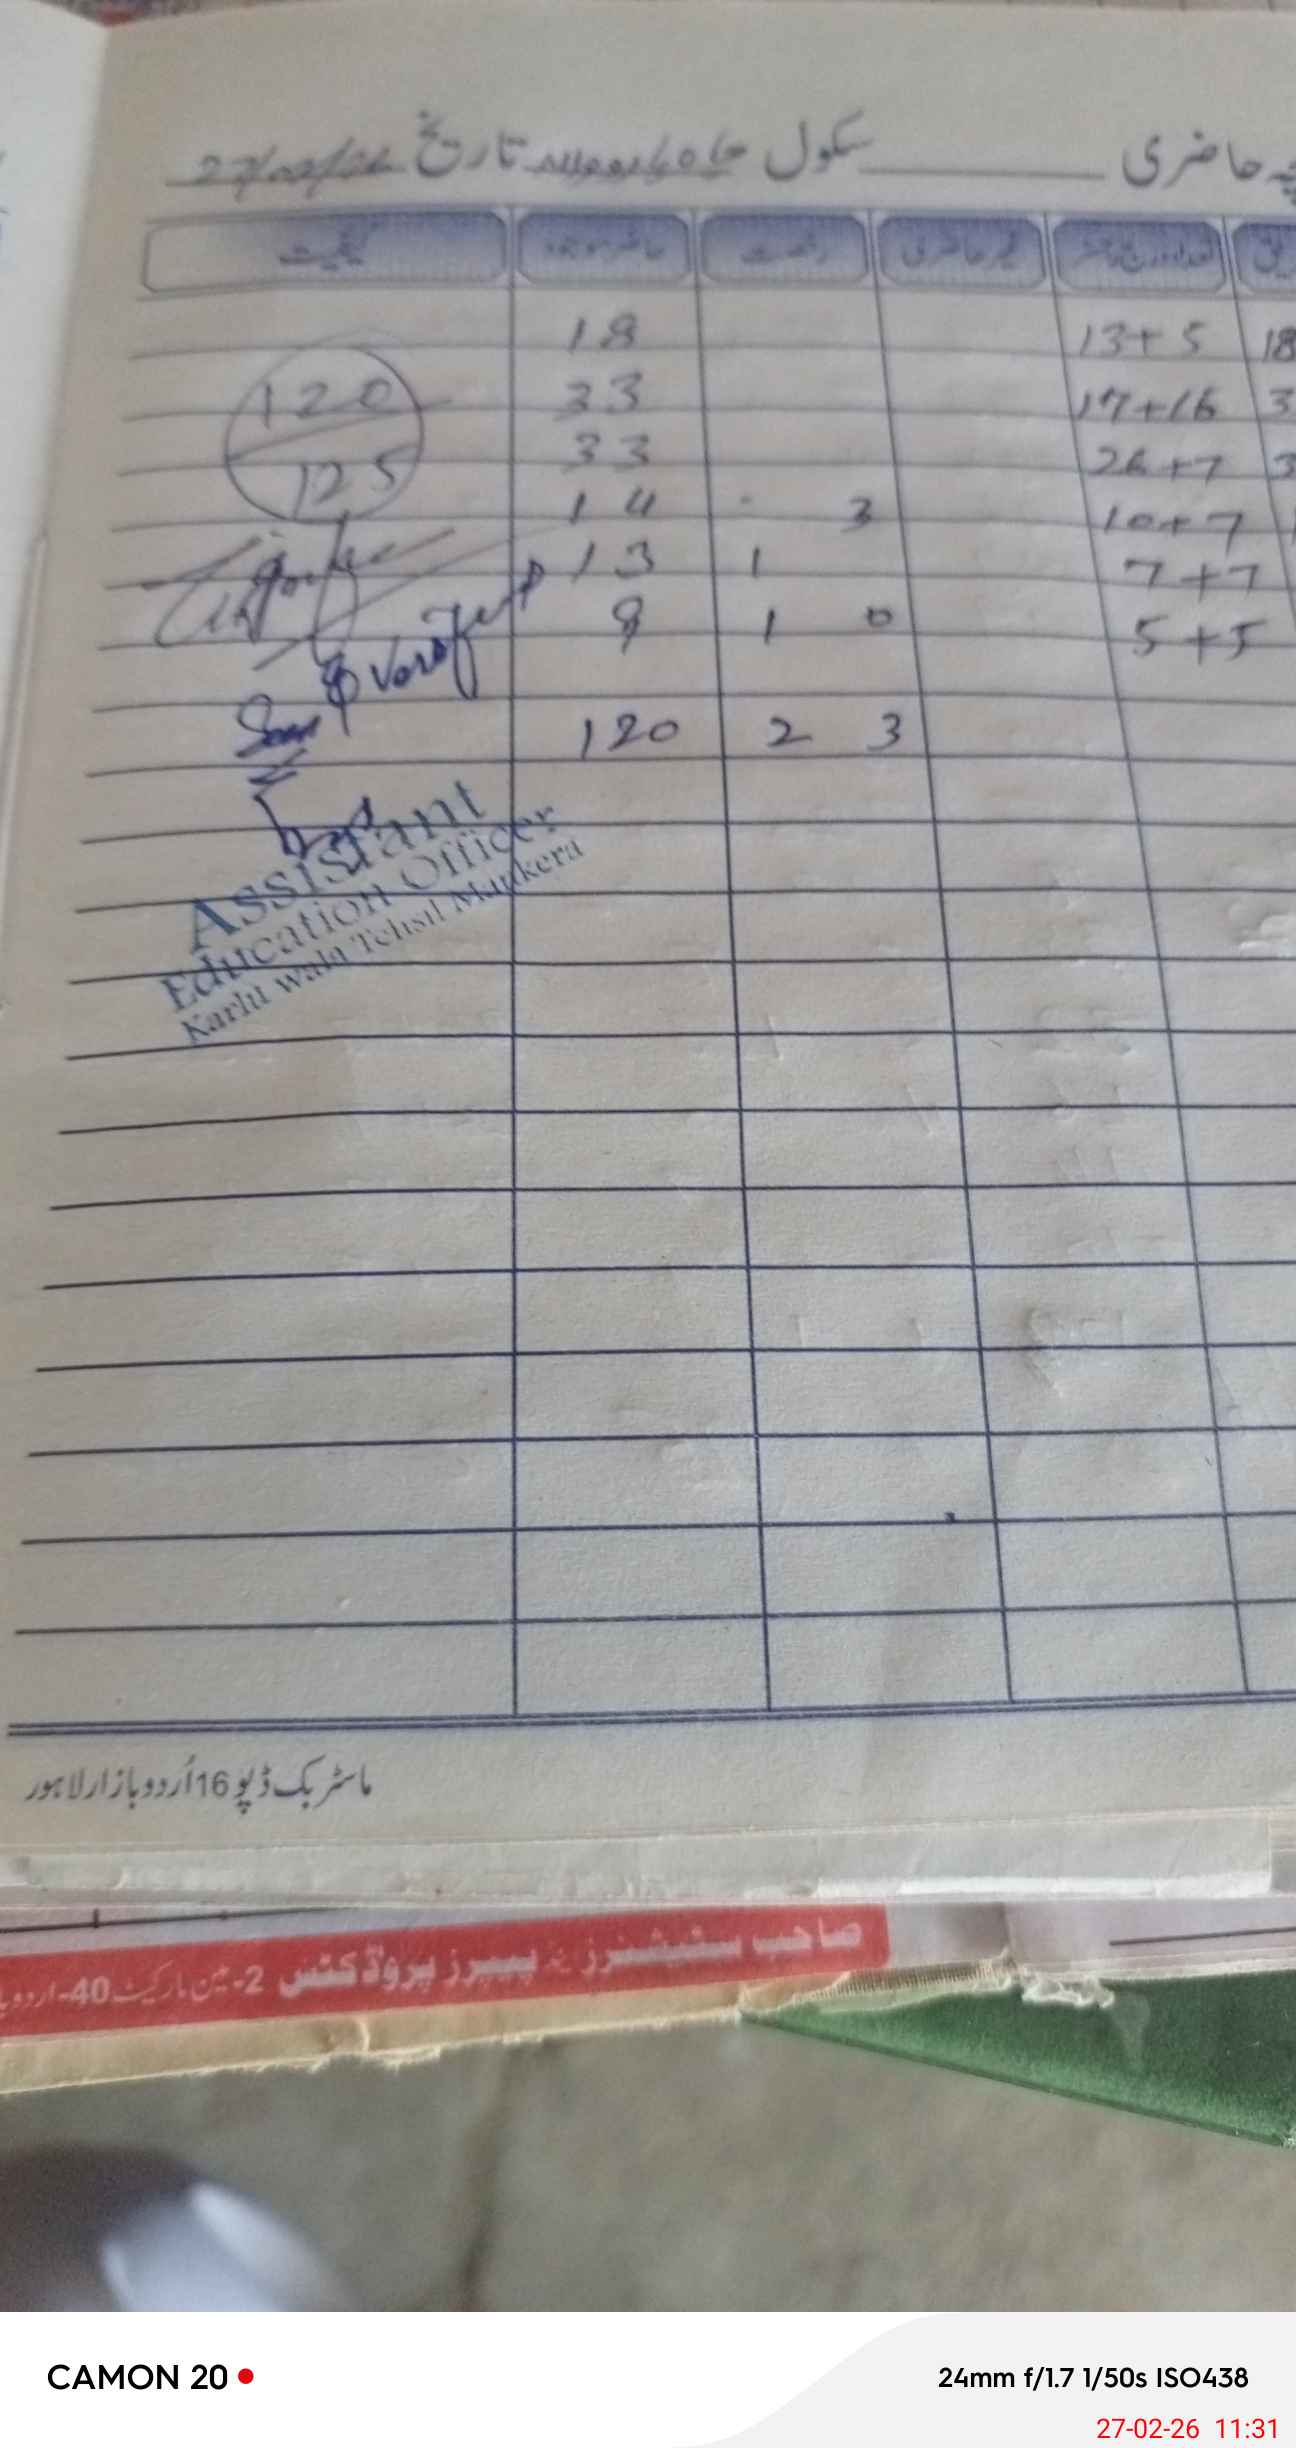 حاضری _______ سکول چاہ یارووالا تاریخ 27/02/26
تعداد درج رجسٹر غیر حاضری رخصت حاضر موجودہ کیفیت
18 13+5 18
120 33 17+16 3
125 33 26+7 3
14 3 10+7 1
13 1 7+7
9 1 0 5+5
120 2 3
Assistant
Education Officer
Karlu wala Tehsil Mankera
ماسٹر بک ڈپو 16 اُردو بازار لاہور
صاحب سٹیشنرز پیپرز پروڈکٹس 2-مین مارکیٹ 40-اردو
CAMON 20
24mm f/1.7 1/50s ISO438
27-02-26 11:31